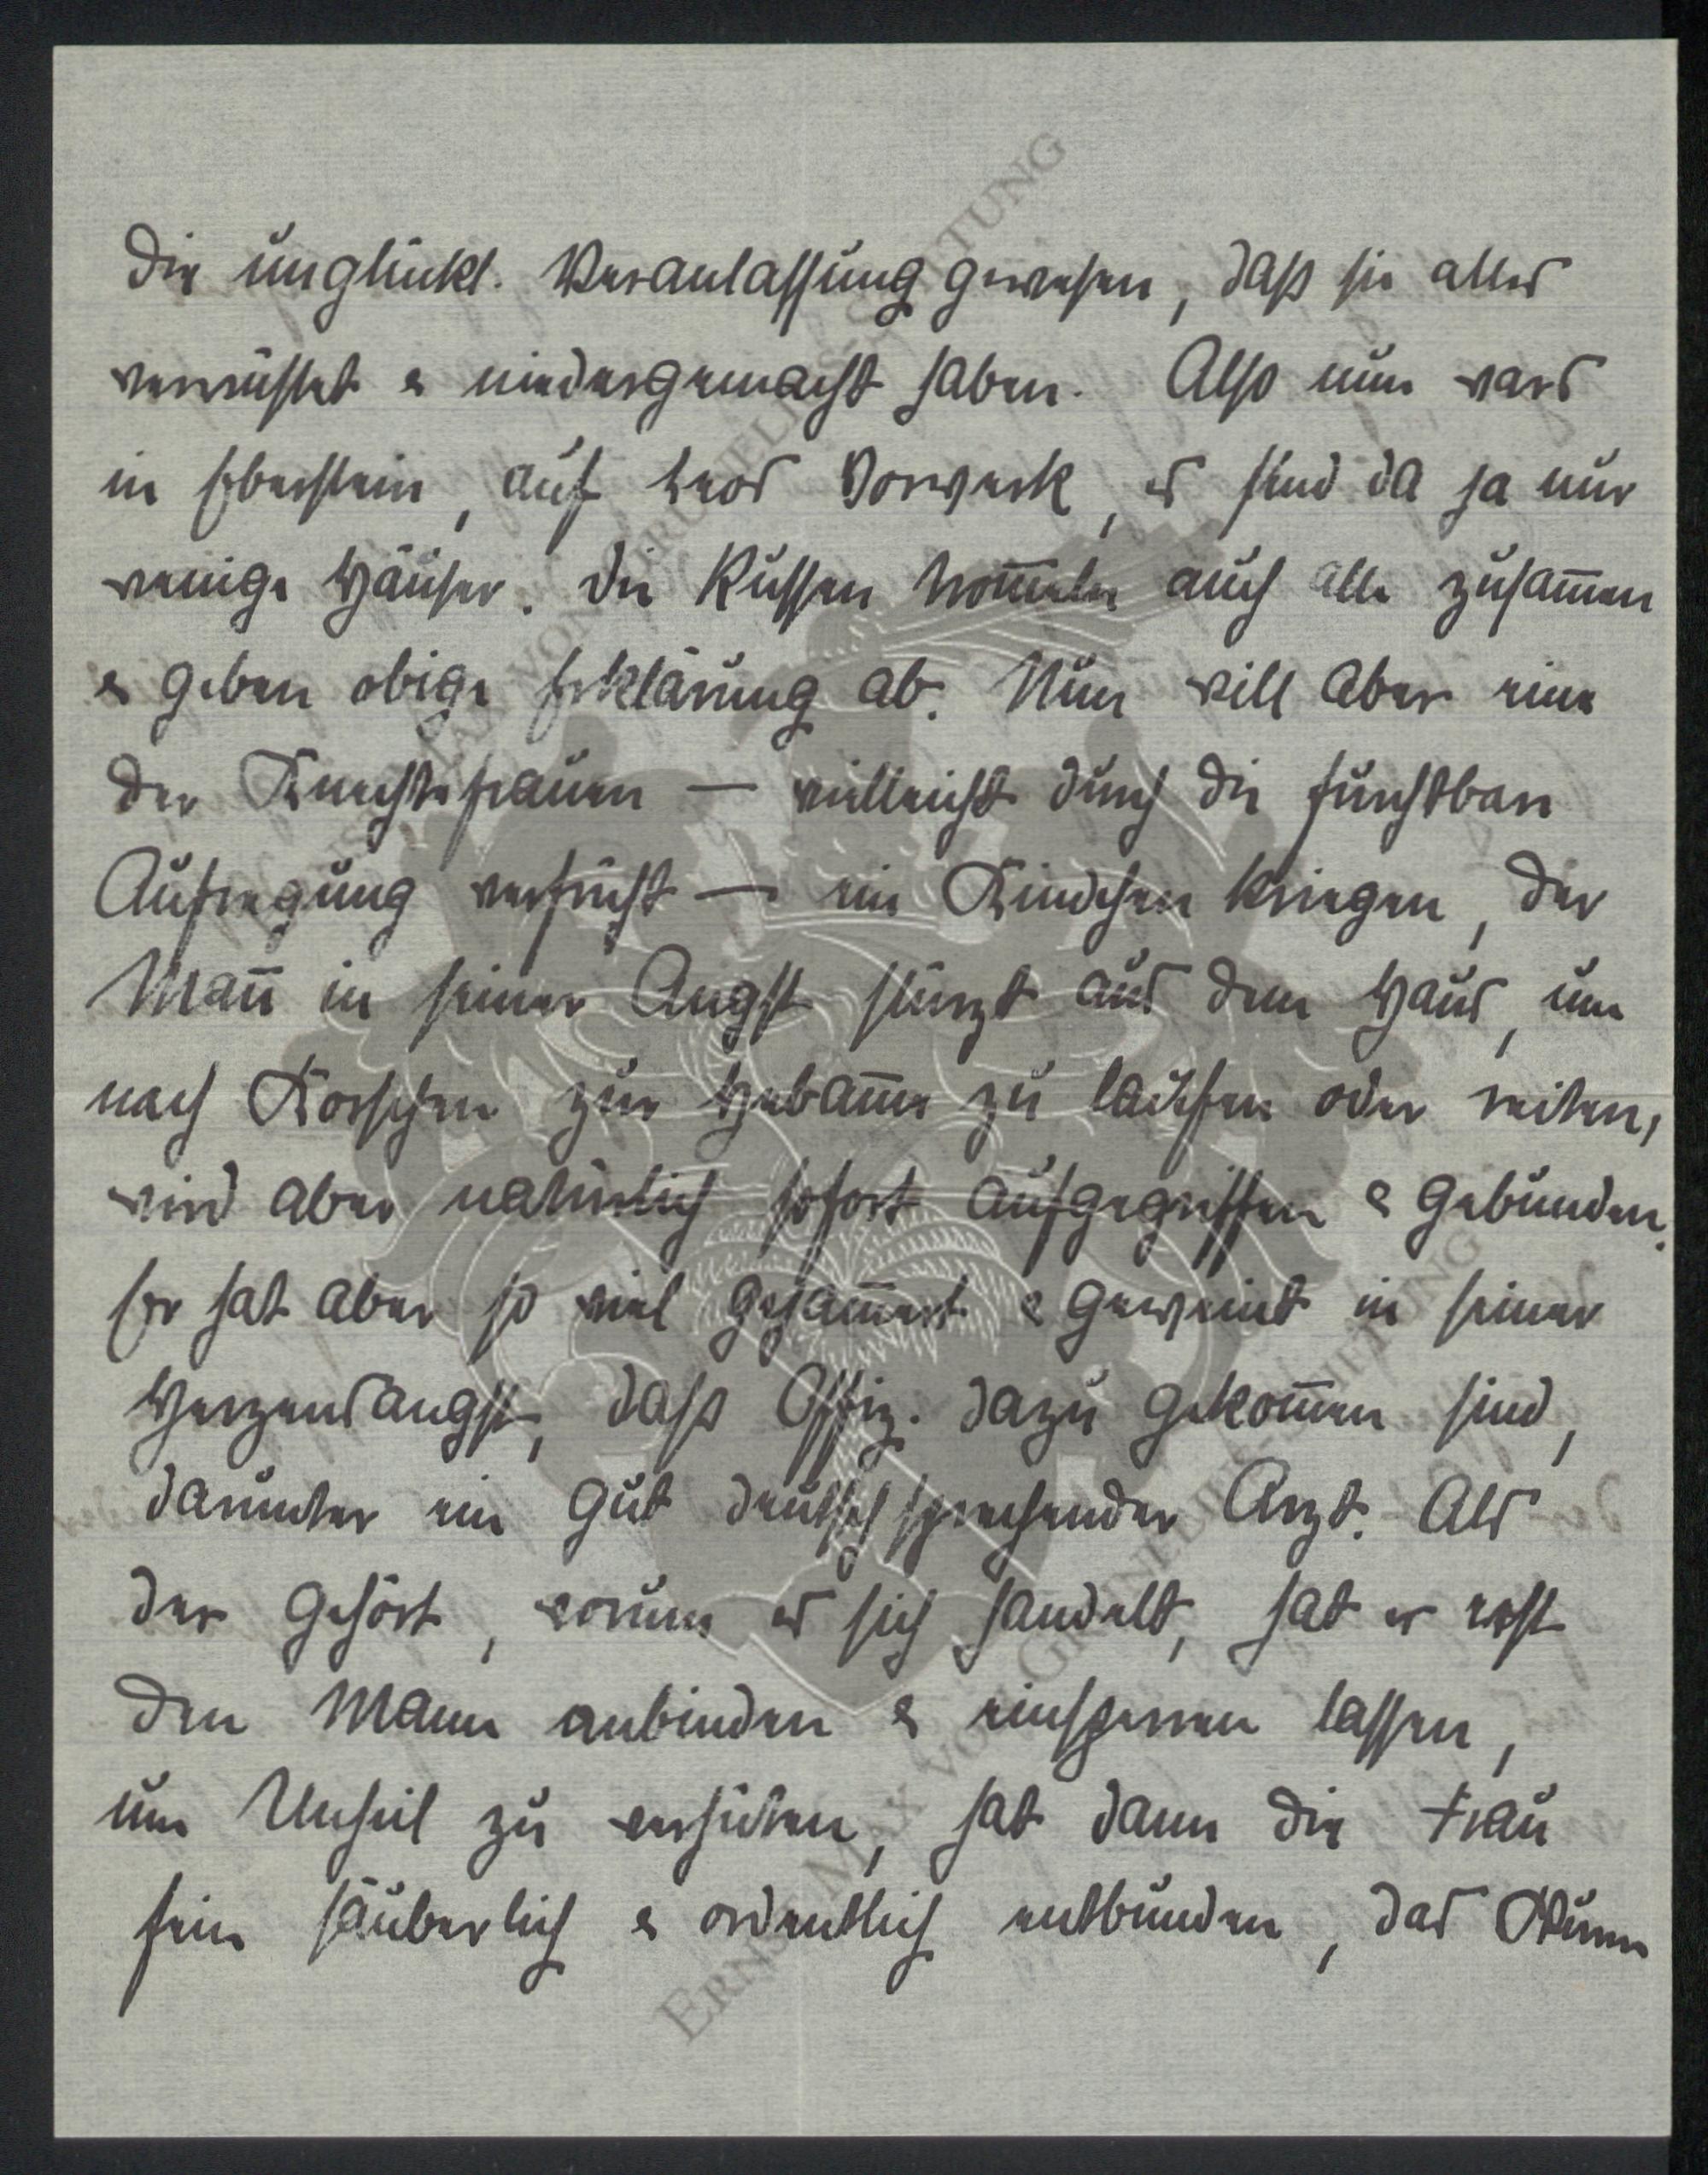 die unglückl. Veranlassung gewesen, daß sie alles
verwüstet & niedergemacht haben. Also nun wars
in Eberstein, auf Vorwerk, es sind da ja nur
wenige Häuser. Die Russen trommeln auch alle zusammen
& geben obige Erklärung ab. Nun will aber eine
der Knechtsfrauen — vielleicht durch die furchtbare
Aufregung verfrüht — ein Kindchen kriegen, der
Mann in seiner Angst stürzt aus dem Haus, um
nach Korschen zur Hebamme zu laufen oder reiten,
wird aber natürlich sofort aufgegriffen & gebunden.
Er hat aber so viel gejammert & geweint in seiner
Herzensangst, daß Offiz. dazu gekommen sind,
darunter ein gut deutsch sprechender Arzt. Als
der gehört, worum es sich handelt, hat er erst
den Mann anbinden & einsperren lassen,
um Unheil zu verhüten, hat dann die Frau
fein säuberlich & ordentlich entbunden, das Wurm
ERNST MAX VON GRUNELIUS-STIFTUNG
ERNST MAX VON GRUNELIUS-STIFTUNG